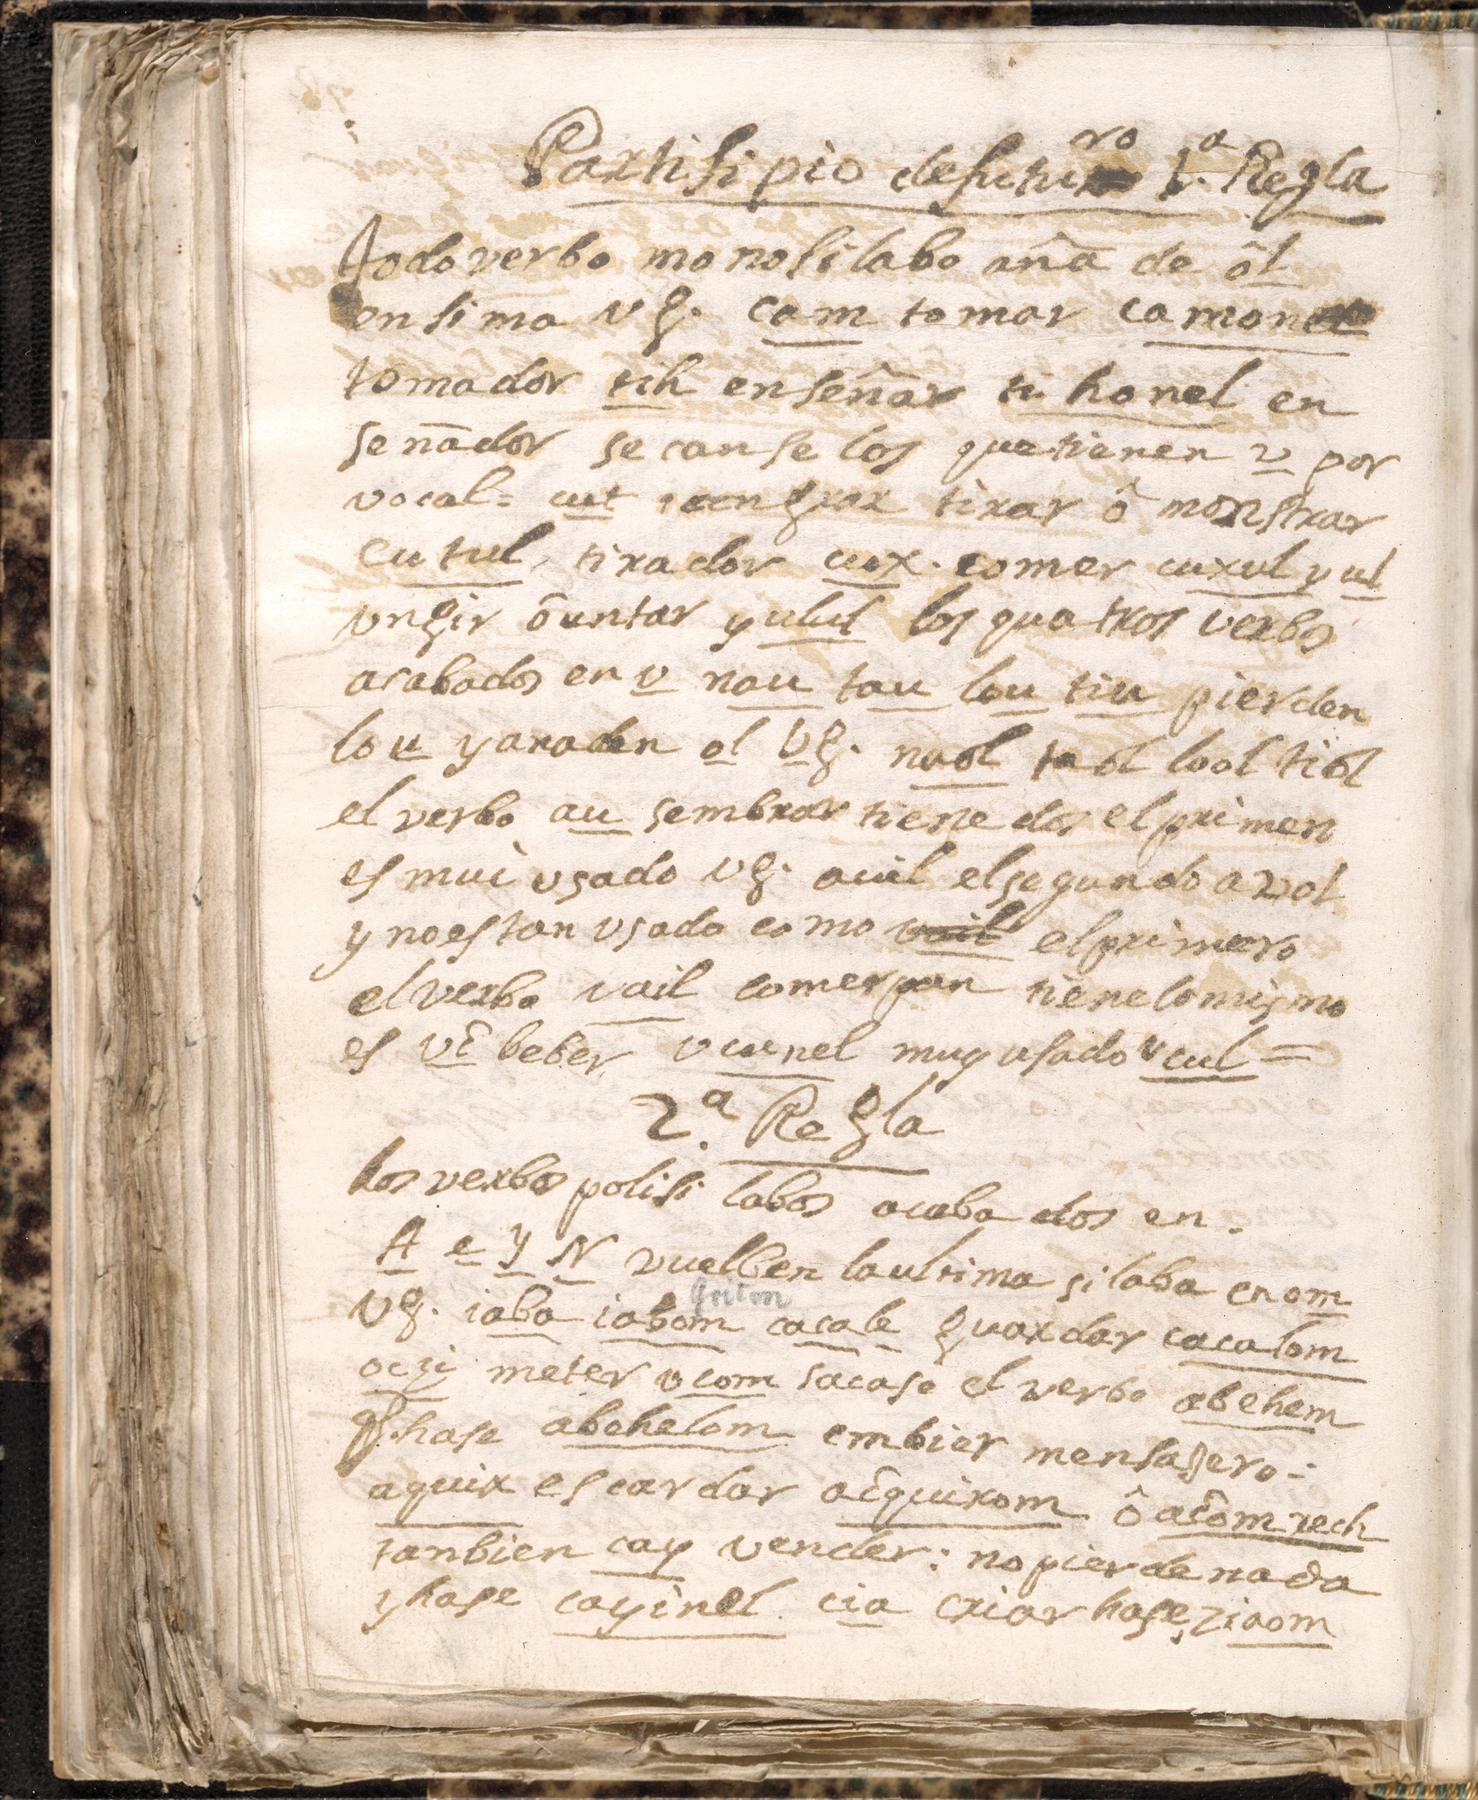 Partisipio de futuro 1.ª Regla
todo verbo monosilabo añâ de ôl
ensima vg. cam tomar camonel
tomador tih enseñar ti honel en
señador se canse los que tienen v por
vocal = cut tirar ô monstrar
cutul, tirador cux. comer cuxul yul
vngir ô untar yulul los quatros verbos
acabados en v nau tau lou tiu pierden
lo u y anaden ol Vg. naol taol lool tiol
el verbo au sembrar tiene dos el primen
es mui vsado vg. auil el segundo avol
y no es tan vsado como el primero
el verbo vail comer pan tiene lo mismo
es vc̃ beber vcunel muy usado vcul =
2.ª Regla
los verbos polisi labos acaba dos en.
A e y N vuelben la ultima silaba en om
Vg. iaba iabom cacale guardar cacalom
griton
ocsi meter ocom sacase el verbo abehem
q. hase abehelom embier mensagero:
aquix escardar ac̃quixom ô ac̃om rech
tanbien cay vender: no pierde nada
y hase cayinel. cia criar hase, ziaom